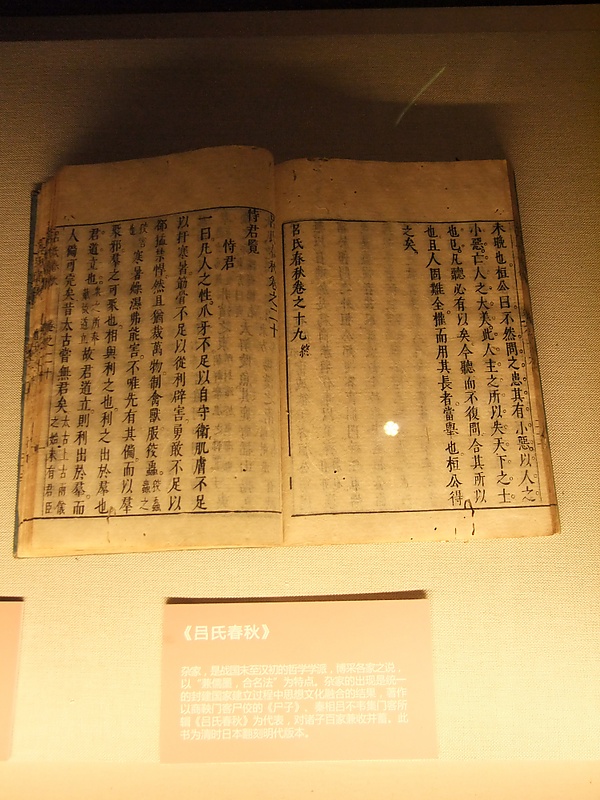 未敢也桓公曰不然問之患其有小惡以人之
小惡亡人之大美此人主之所以失天下之士
也已凡聽必有以矣今聽而不復問合其所以
也且人固難全權而用其長者當舉也桓公得
之矣
呂氏春秋卷之十九 終
呂氏春秋卷之二十
恃君覽
恃君
一曰凡人之性爪牙不足以自守衛肌膚不足
以扞寒暑筋骨不足以從利辟害勇敢不足以
却猛禁悍然且猶裁萬物制禽獸服狡蟲
寒暑燥濕弗能害不唯先有其備而以羣
聚邪羣之可聚也相與利之也利之出於羣也
君道立也 故君道立則利出於羣而
人備可完矣昔太古嘗無君矣 太古上古兩儀之始未有君臣
《吕氏春秋》
杂家，是战国末至汉初的哲学学派，博采各家之说，
以“兼儒墨，合名法”为特点。杂家的出现是统一
的封建国家建立过程中思想文化融合的结果，著作
以商鞅门客尸佼的《尸子》、秦相吕不韦集门客所
辑《吕氏春秋》为代表，对诸子百家兼收并蓄。此
书为清时日本翻刻明代版本。